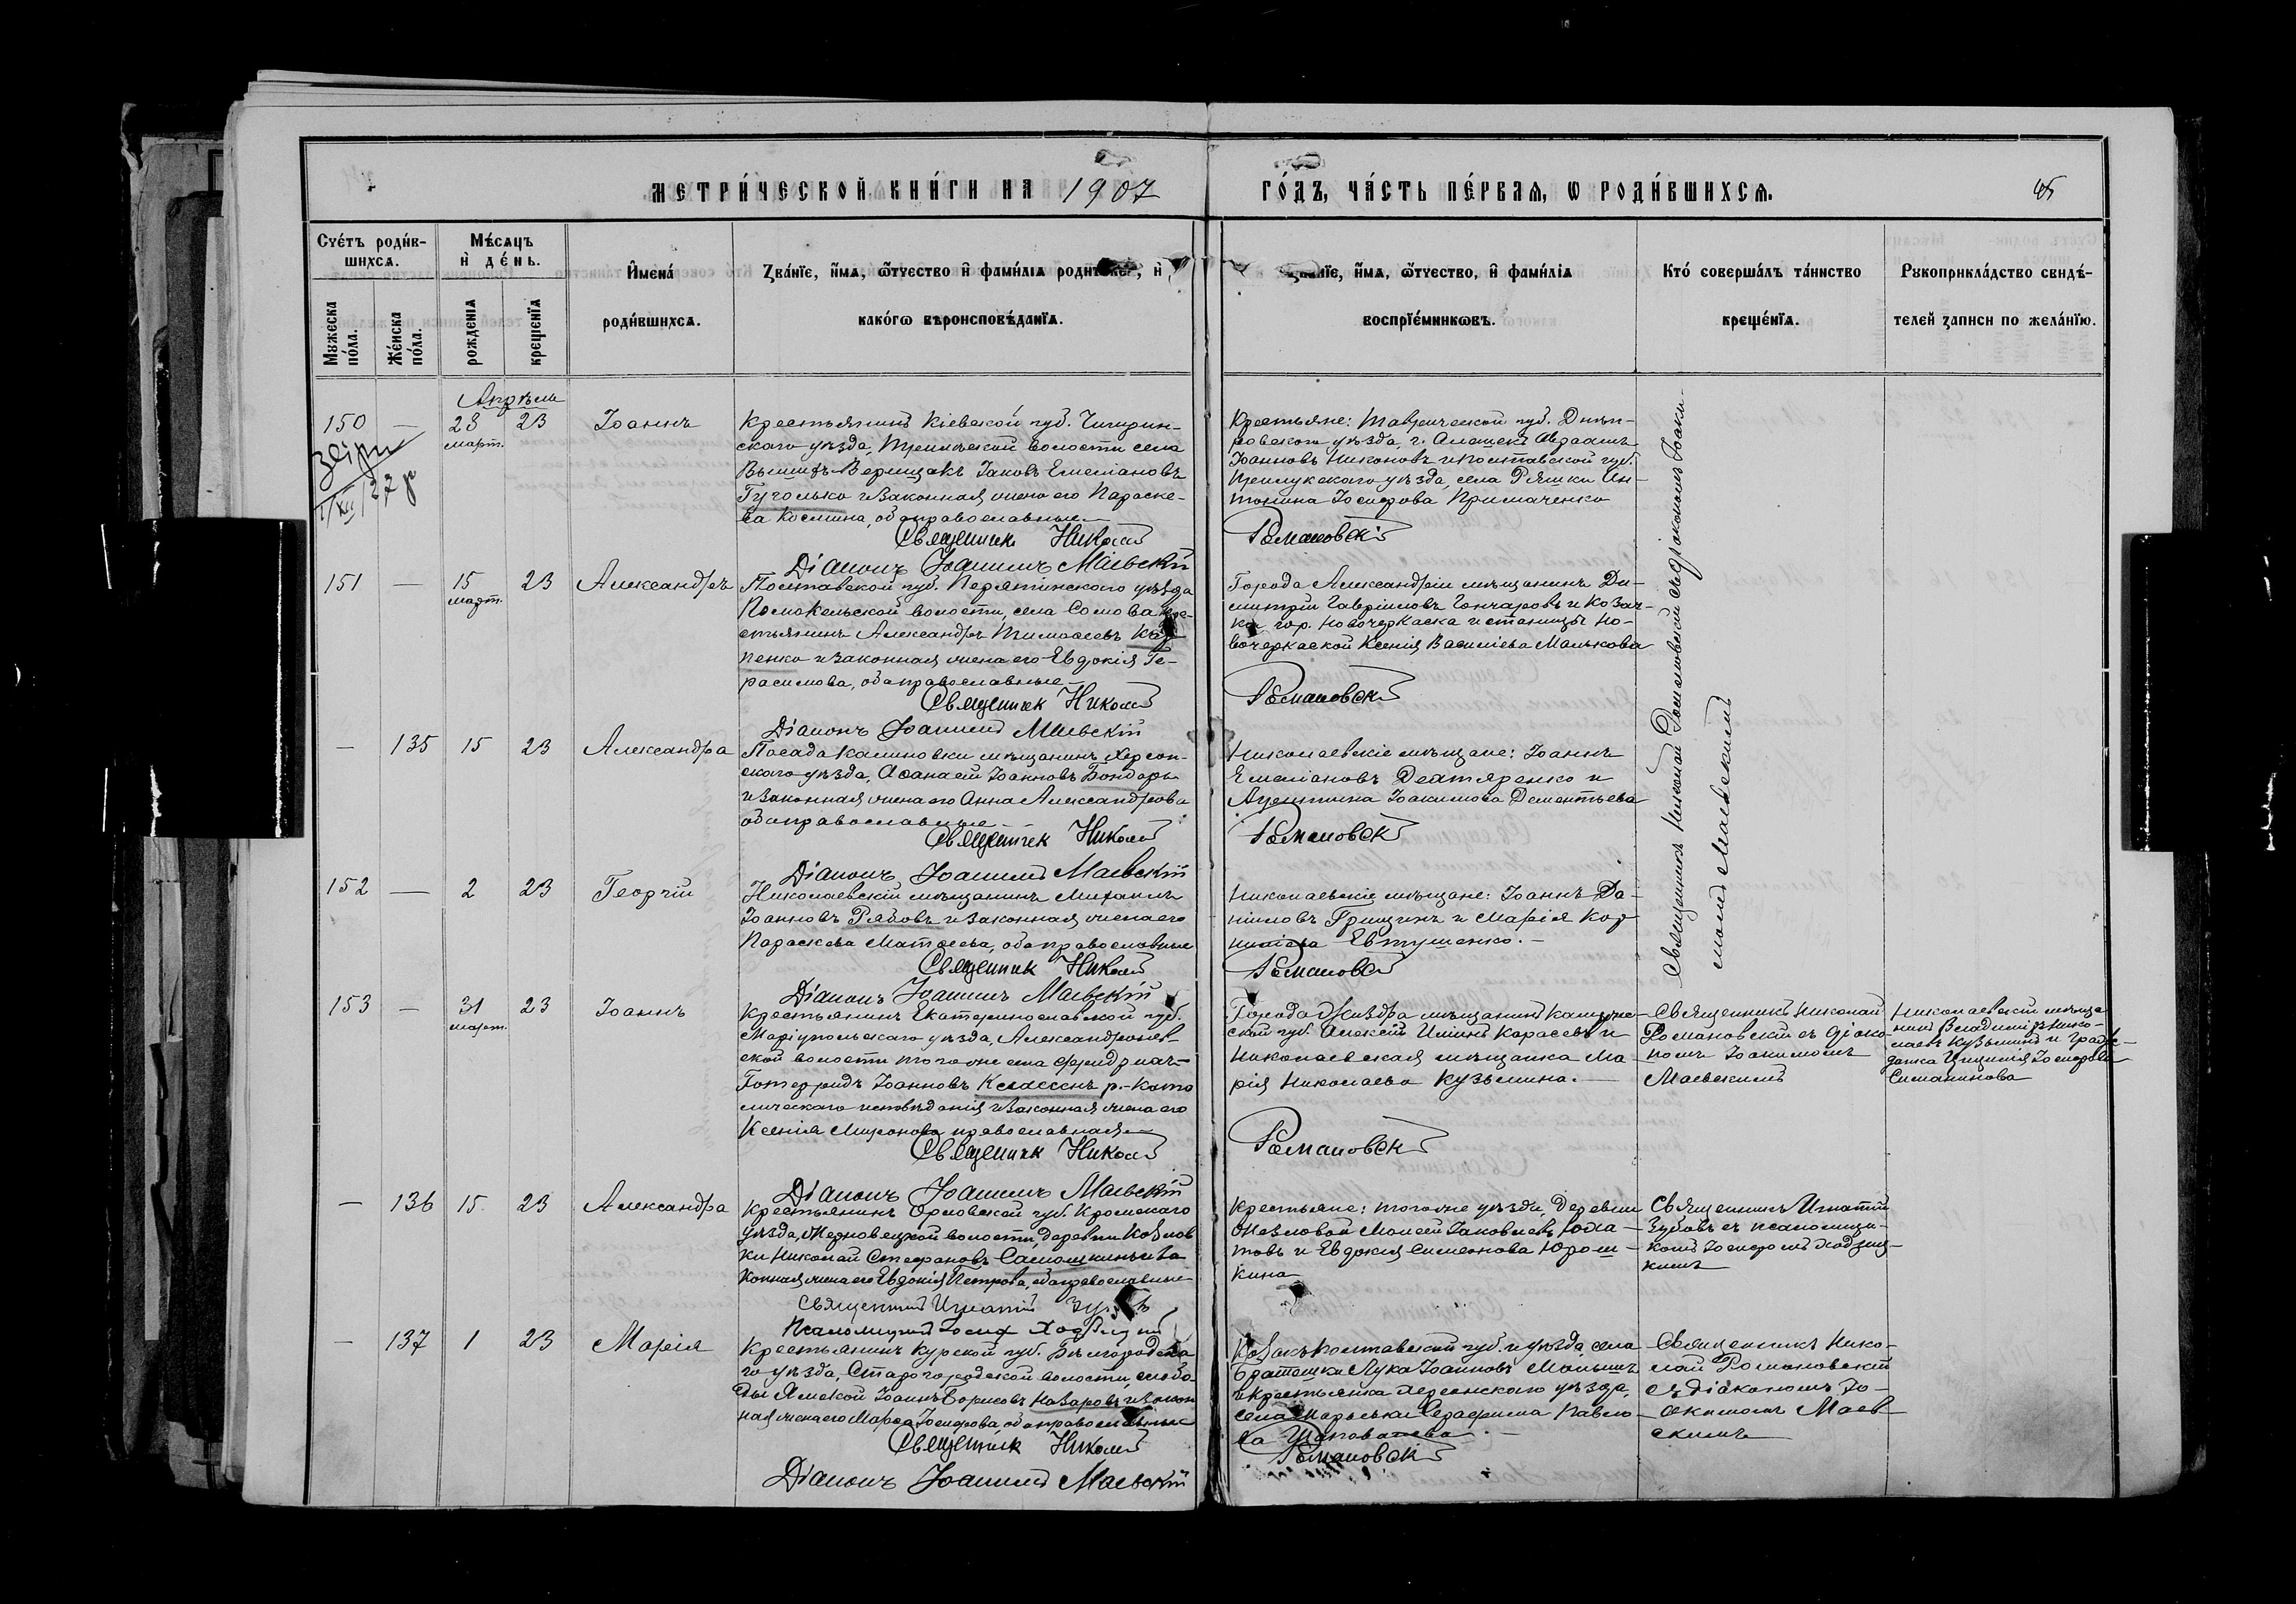 МЕТРИ́ЧЕСКОЙ КНИ́ГИ НА 1907 ГО́ДЪ, ЧА́СТЬ ПЕ́РВАЯ, Ѡ РОДИ́ВШИХСЯ.
Сче́тъ роди́в-
шихся.
Мѣ́сяцъ
и҆ де́нь.
И҆мена́
роди́вшихся.
Зва́нїе, и҆́мя, ѻ҆́тчество и҆ фами́лїя и҆
како́гѡ вѣроисповѣ́данїя.
и҆́мя, ѻ҆́тчество, и҆ фами́лїя
воспрїе́мникѡвъ.
Кто́ соверша́лъ та́инство
креще́нїя.
Рукоприкла́дство свидѣ́-
телей записи по жела́нїю.
Мужеска
по́ла.
Же́нска
по́ла.
рожденїя
крещенїя
Апрѣль
150 — 28 март. 23 Іоаннъ
Крестьянинъ Кіевской губ. Чигирин-
скаго уѣзда, волости села
Іаковъ Емеліановъ
Гуголько и законная жена его Параске-
ва Косьмина, оба православные
Священникъ Николай Романовскій
Діаконъ Іоакимъ Маевскій
Крестьяне: Таврической губ. Днѣп-
ровскаго уѣзда, г. Алешекъ Авраамъ
Іоанновъ Никоновъ и Полтавской губ.
Прилукскаго уѣзда, села Ряшки Ан-
тонина Іосифова Примаченко
Священникъ Николай Романовскій съ діакономъ Іоаки-
момъ Маевскимъ
151 — 15 март. 23 Александръ
Полтавской губ. Пирятинскаго уѣзда
волости, села кре-
стьянинъ Александръ Тимофеевъ Кар
пенко и законная жена его Евдокія Ге-
расимова, оба православные
Священникъ Николай Романовскій
Діаконъ Іоакимъ Маевскій
Города Александріи мѣщанинъ Ди-
митрій Гавріиловъ Гончаровъ и Козач-
ка гор. Новочеркаска и станицы Но-
вочеркаской Ксенія Василіева Малькова
— 135 15 23 Александра
Посада Калиновки мѣщанинъ, Херсон-
скаго уѣзда, Аѳанасій Іоанновъ Бондарь
и законная жена его Анна Александрова
оба православные
Священникъ Николай Романовскій
Діаконъ Іоакимъ Маевскій
Николаевскіе мѣщане: Іоаннъ
Емеліановъ Дехтяренко и
Іоакимова Дементьева
152 — 2 23 Георгій
Николаевскій мѣщанинъ Михаилъ
Іоанновъ Рябовъ и законная жена его
Параскева Матѳеева, оба православные
Священникъ Николай Романовскій
Діаконъ Іоакимъ Маевскій
Николаевскіе мѣщане: Іоаннъ Да-
ніиловъ Грищинъ и Марія Кор
ниліева Евтушенко. —
153 — 31 март. 23 Іоаннъ
Крестьянинъ Екатеринославской губ.
Маріупольскаго уѣзда, Александронев-
ской волости того же села
Готфридъ Іоанновъ Классенъ р.-като
лическаго исповѣданія и законная жена его
Ксенія Миронова православная
Священникъ Николай Романовскій
Діаконъ Іоакимъ Маевскій
Города Жиздра мѣщанинъ Калуж-
ской губ. Алексій Карасевъ и
Николаевская мѣщанка Ма-
рія Николаева Кузьмина. —
Священникъ Николай
Романовскій съ діако-
номъ Іоакимомъ
Маевскимъ
Николаевскій мѣща
нинъ Владиміръ Нико-
лаевъ Кузьминъ и граж-
данка Іосифова
Симанинова
— 136 15. 23 Александра
Крестьянинъ Орловской губ. Кромскаго
уѣзда, волости, деревни Козлов
ки Николай Стефановъ Самошкинъ и за
конная жена его Евдокія Петрова, оба православные
Священникъ Игнатій
Псаломщикъ Іосифъ
Крестьяне: того же уѣзда, деревни
Моисей Іаковлевъ
и Евдокія Симеонова Юрош-
кина
Священникъ Игнатій
Зубовъ съ псаломщи-
комъ Іосифомъ
— 137 1 23 Марія
Крестьянинъ Курской губ. Бѣлгородска
го уѣзда, Старогородской волости, слобо-
ды Ямской Іоаннъ Борисовъ Назаровъ и закон
ная жена его Марѳа Іосифова, оба православные
Священникъ Николай Романовскій
Діаконъ Іоакимъ Маевскій
Козакъ Полтавской губ. и уѣзда, села
Братешки Лука Іоанновъ
и крестьянка Херсонскаго уѣзда,
села Серафима Павло-
ва Шаповалова. —
Священникъ Нико-
лай Романовскій
съ діакономъ Іо-
акимомъ Маев
скимъ